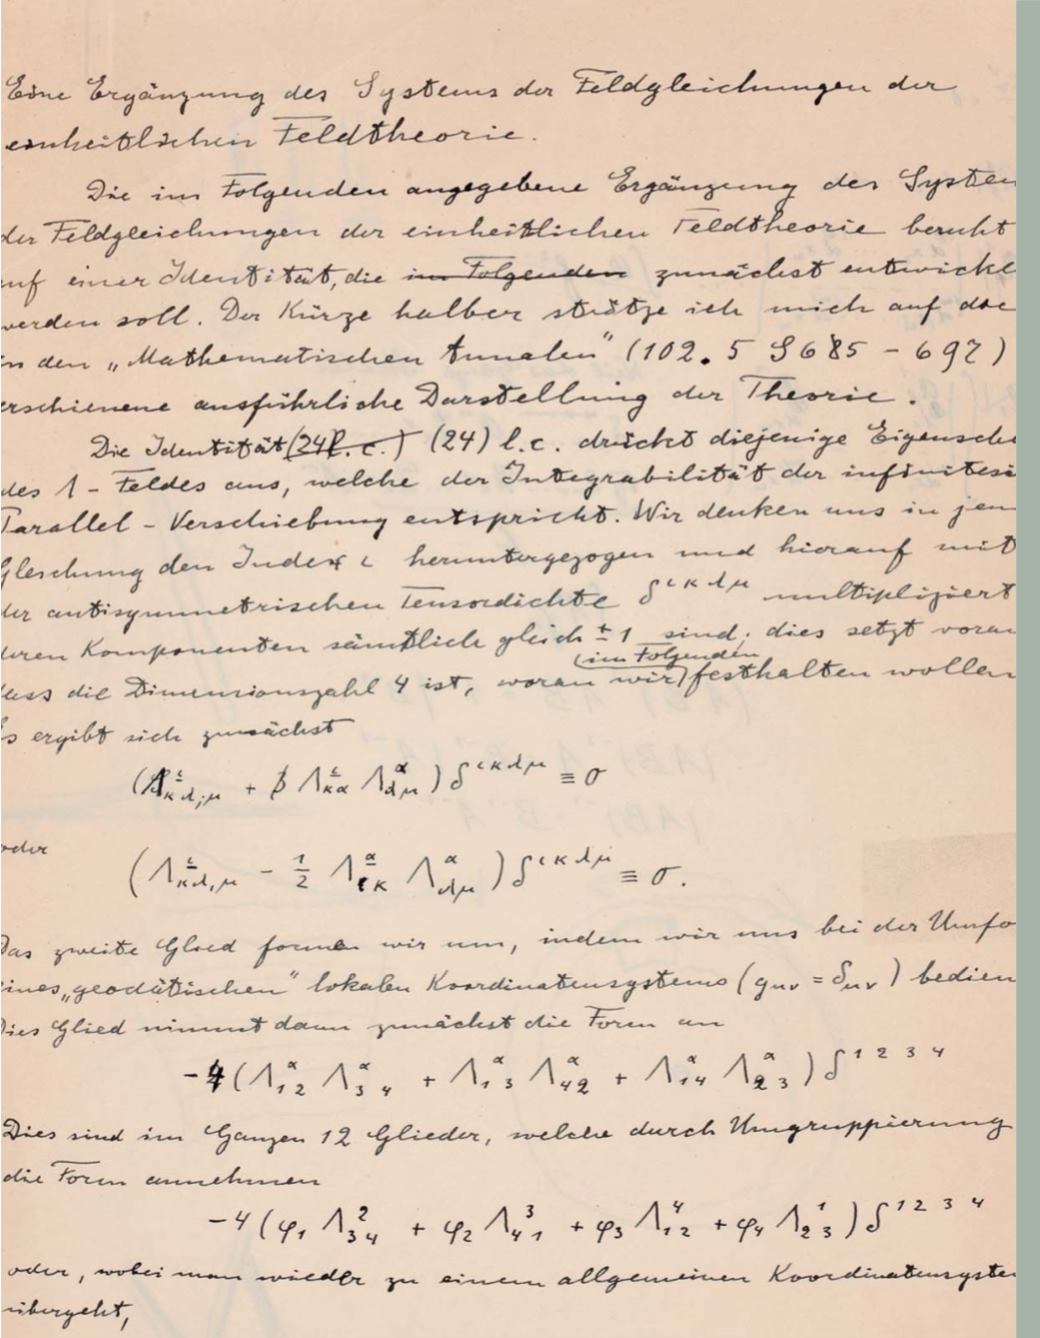 Eine Ergänzung des Systems der Feldgleichungen der
einheitlichen Feldtheorie.
Die im Folgenden angegebene Ergänzung des System
der Feldgleichungen der einheitlichen Feldtheorie beruht
auf einer Identität, die im Folgenden zunächst entwickel
werden soll. Der Kürze halber stütze ich mich auf die
in den „Mathematischen Annalen" (102. 5 S 685 - 697)
erschienene ausführliche Darstellung der Theorie.
Die Identität (24 l.c.) (24) l.c. drückt diejenige Eigensch
des Λ - Feldes aus, welche der Integrabilität der infinitesi
Parallel - Verschiebung entspricht. Wir denken uns in jen
Gleichung den Index ι heruntergezogen und hierauf mit
der antisymmetrischen Tensordichte δ^{ικλμ} multipliziert
deren Komponenten sämtlich gleich ± 1 sind; dies setzt vorau
(im Folgenden
dass die Dimensionszahl 4 ist, woran wir) festhalten wollen
Es ergibt sich zunächst
(Λ^ι_{κλ;μ} + Λ^ι_{κα} Λ^α_{λμ}) δ^{ικλμ} ≡ 0
oder
(Λ^ι_{κλ,μ} - 1/2 Λ^α_{ικ} Λ^α_{λμ}) δ^{ικλμ} ≡ 0.
Das zweite Glied formen wir um, indem wir uns bei der Umfo
eines „geodätischen" lokalen Koordinatensystems (g_{μν} = δ_{μν}) bedien
Dies Glied nimmt dann zunächst die Form an
-4 (Λ^α_{12} Λ^α_{34} + Λ^α_{13} Λ^α_{42} + Λ^α_{14} Λ^α_{23}) δ^{1234}
Dies sind im Ganzen 12 Glieder, welche durch Umgruppierung
die Form annehmen
-4 (φ_1 Λ^2_{34} + φ_2 Λ^3_{41} + φ_3 Λ^4_{12} + φ_4 Λ^1_{23}) δ^{1234}
oder, wobei man wieder zu einem allgemeinen Koordinatensyste
übergeht,